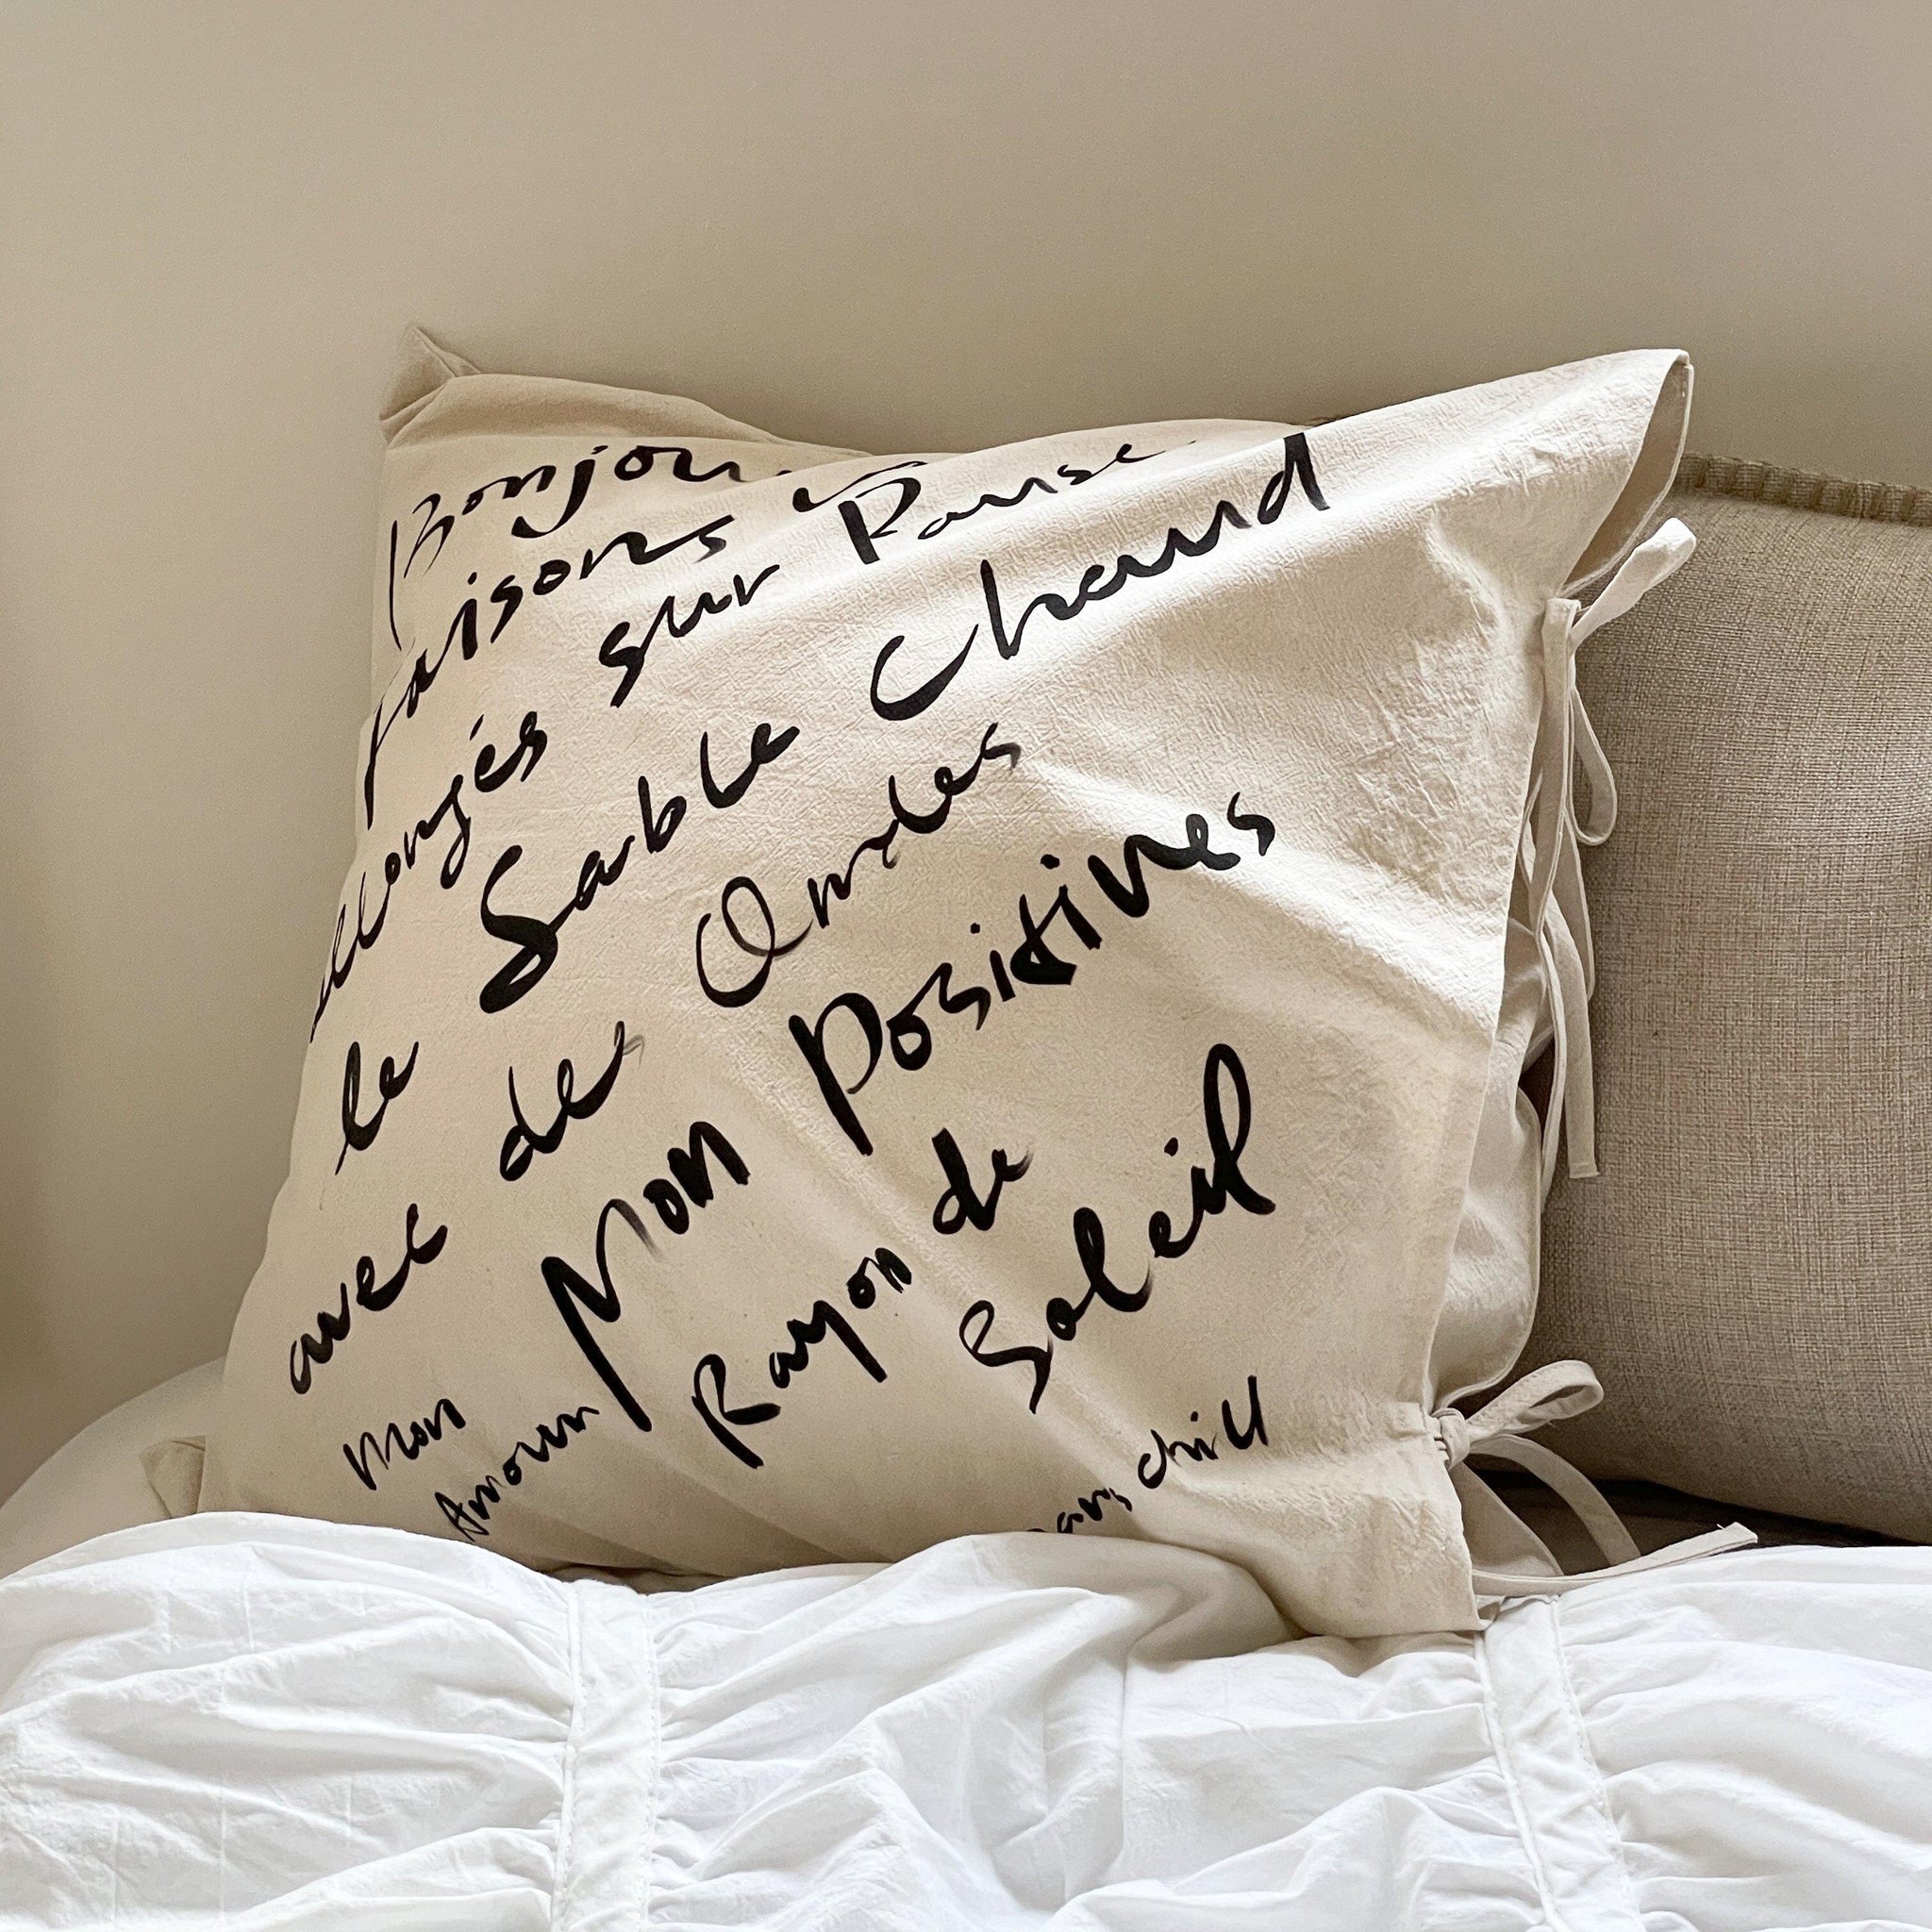 Bonjour
faisons Pause
allongés sur
le Sable Chaud
avec des Ondes
Positives
Mon Rayon de
Soleil
Mon
Amour
chill